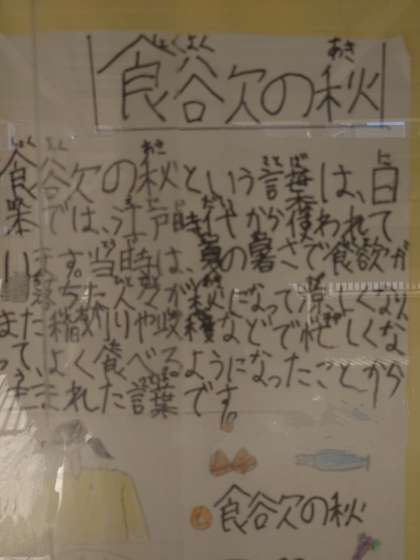 しょくよく あき
食欲の秋
しょく よく あき こと ば に
食欲の秋という言葉は、日
では、江戸時代から使われて
います。当時は、夏の暑さで食欲が
ちた人々が秋になって涼しくな
また稲刈りや収穫などで忙しくな
ってよく食べるようになったことから
生まれた言葉です。
食欲の秋